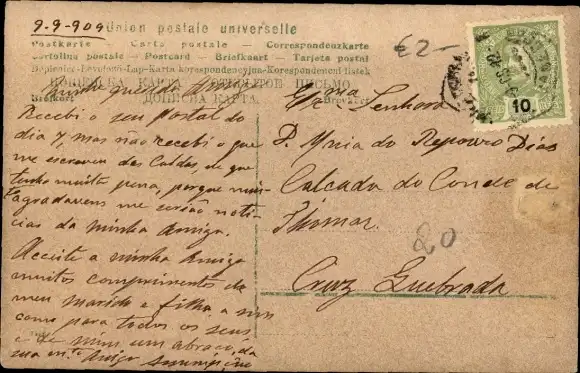 9-9-909
Union postale universelle
Postkarte - Carte postale - Correspondenzkarte
Cartolina postale - Postcard - Briefkaart - Tarjeta postal
Levelező-Lap - Karta korespondencyjna - Korespondenční lístek
ДОПИСНА КАРТА
Brefkort
Brevkort
€2-
Minha querida Amiga
Recebi o seu postal do
dia 7, mas não recebi o que
me escreveu das Caldas, de que
tenho muita pena, porque mui
agradaveis me serião noti-
cias da minha Amiga.
Acceite a minha Amiga
muitos comprimentos de
meu marido e filha a sim
como para todos os seus
e de mim um abraço, da
sua Amiga
Exma
Senhora
D. Maria do Repouro Dias
Calcada do Conde de
Thomar
20
Cruz Quebrada
10